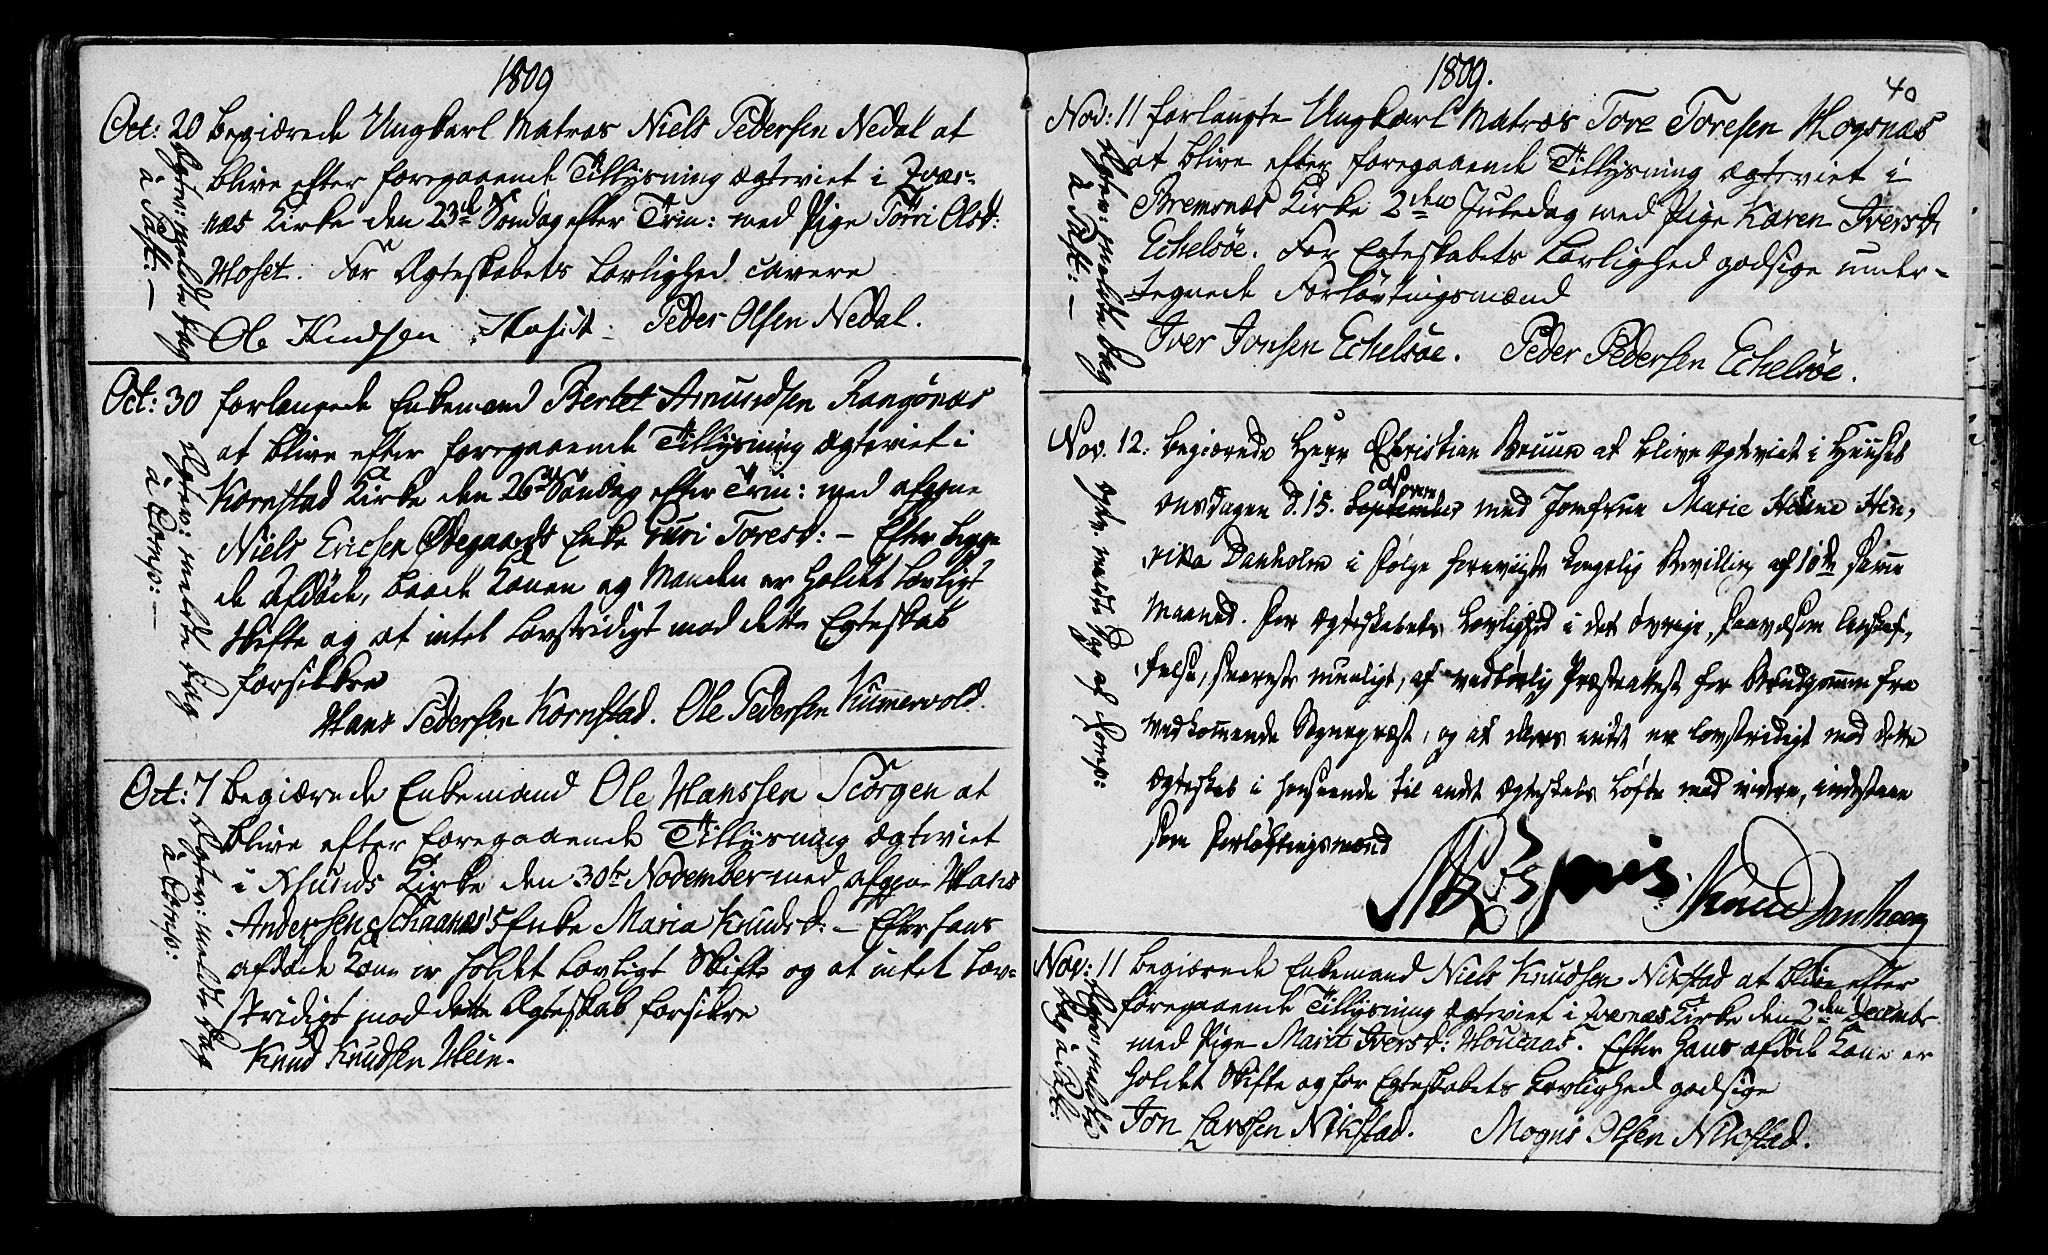 1809
Oct: 20 begiærede Ungkarl Matros Niels Pedersen Nedal at
blive efter foregaaende Tillysning ægteviet i Qvær-
næs Kirke den 23de Søndag efter Trin: med Pige Torri Olsd:
Hoset. For Ægteskabets Lovlighed cavere
Ole Knudsen Hoset. Peder Olsen Nedal.
Ægtev: meldte Dag
à Past: —
Oct: 30 forlangede Enkemand Bertet Amundsen Rangønæs
at blive efter foregaaende Tillysning ægteviet i
Kornstad Kirke den 26de Søndag efter Trin: med afgne
Niels Ericsen Ødegaards Enke Guri Toresd: — Efter begge
de Afdøde, baade Konen og Manden er holdet lovligt
Skifte og at intet lovstridigt mod dette Egteskab
forsikkre
Hans Pedersen Kornstad. Ole Pedersen Kummervold.
Egtev: meldte Dag
à Comp: —
Oct: 7 begiærede Enkemand Ole Hanssen Storgen at
blive efter foregaaende Tillysning ægteviet
i Øhunds Kirke den 30te November med afgne Hans
Andersen Schaanæs's Enke Maria Knudsd: — Efter hans
afdøde Kone er holdet lovligt Skifte og at intet lov-
stridigt mod dette Ægteskab forsikre
Knud Knudsen Hein.
Egtev: meldte Dag
à Comp:
1809.
40
Nov: 11 forlangte Ungkarl Matros Tore Toresen Hogsnæs
at blive efter foregaaende Tillysning ægteviet i
Bremsnæs Kirke 2den Juledag med Pige Karen Iversd
Echelsøe. For Egteskabets Lovlighed godsige under-
tegnede Forlovningsmænd
Iver Jonsen Echelsøe. Peder Pedersen Echelsøe.
Egtev: meldte Dag
à Past: —
Nov. 12. begiærede Herr Christian Bruun at blive ægteviet i Huuset
onsdagen d. 15. September Novem med Jomfrue Marie Helene Hen,
rika Danholm i følge foreviste kongelig Bevilling af 10de samme
Maaned. For Ægteskabets Lovlighed i det øvrige, saavelsom Anskaf,
felse, snarest mueligt, af vedbørlig Præsteattest for Brudgommen fra
vedkommende Sognepræst, og at deres intet er lovstridigt mod dette
Ægteskab i henseende til andet Ægteskabs Løfte med videre, indestaae
som Forlovningsmænd
Knud Danholm
Egtv. meldte Dag af Comp:
Nov: 11 begiærede Enkemand Niels Knudsen Nikstad at blive efter
foregaaende Tillysning ægteviet i Qværnæs Kirke den 2den Decembr
med Pige Marit Iversd: Houcaas. Efter hans afdøde Kone er
holdet Skifte og for Egteskabets Lovlighed godsige
Jon Larssen Nikstad. Mogns Olsen Nikstad.
Egtev: meldte
Dag à Past: